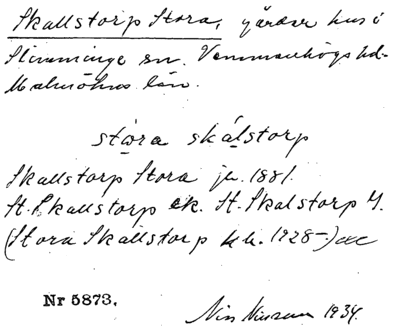 Skallstorp Stora, gårdar hus i
Slimminge sn. Vemmenhögs hd.
Malmöhus län.
stora skálstorp
Skallstorp Stora jb. 1881.
St. Skallstorp ek. St. Skalstorp
(Stora Skallstorp 1928-)
Nr 5873.
1934.